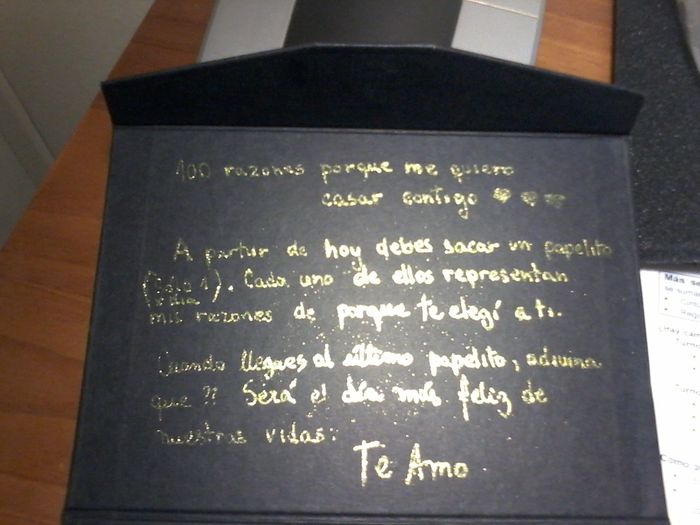 100 razones porque me quiero
casar contigo
A partir de hoy debes sacar un papelito
(Sólo 1
x día). Cada uno de ellos representan
mis razones de porque te elegí a ti.
Cuando llegues al último papelito, adivina
que?? Será el día más feliz de
nuestras vidas:
Te Amo
Más se
se suma